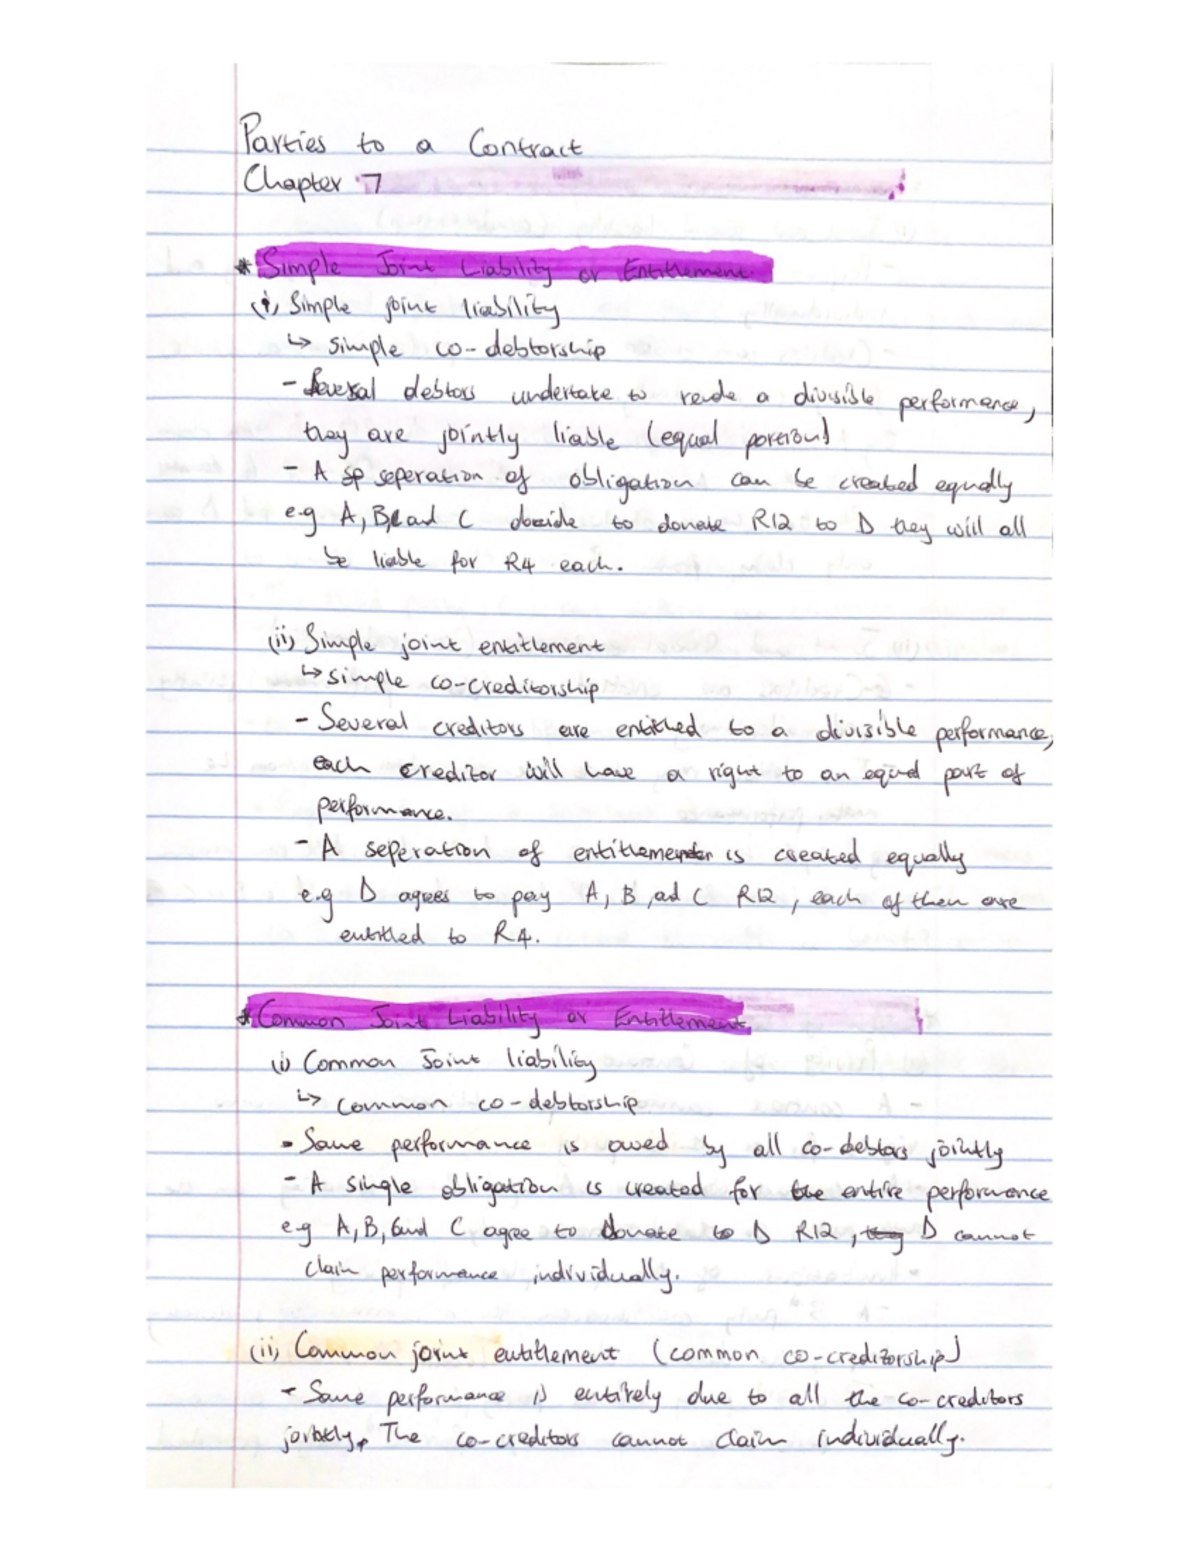 Parties to a Contract
Chapter 7
* Simple Joint Liability or Entitlement.
(i) Simple joint liability
↳ simple co-debtorship
- Several debtors undertake to rende a divisible performance,
they are jointly liable (equal portion)
- A sp seperation of obligation can be created equally
e.g A, B, and C decide to donate R12 to D they will all
be liable for R4 each.
(ii) Simple joint entitlement
↳ simple co-creditorship
- Several creditors are entitled to a divisible performance,
each creditor will have a right to an equal part of
performance.
- A seperation of entitlement is created equally
e.g D agrees to pay A, B, and C R12, each of them are
entitled to R4.
* Common Joint Liability or Entitlement
(i) Common Joint liability
↳ common co-debtorship
- Same performance is owed by all co-debtors jointly
- A single obligation is created for the entire performance
e.g A, B, and C agree to donate to D R12, they D cannot
claim performance individually.
(ii) Common joint entitlement (common co-creditorship)
- Same performance is entirely due to all the co-creditors
jointly. The co-creditors cannot claim individually.